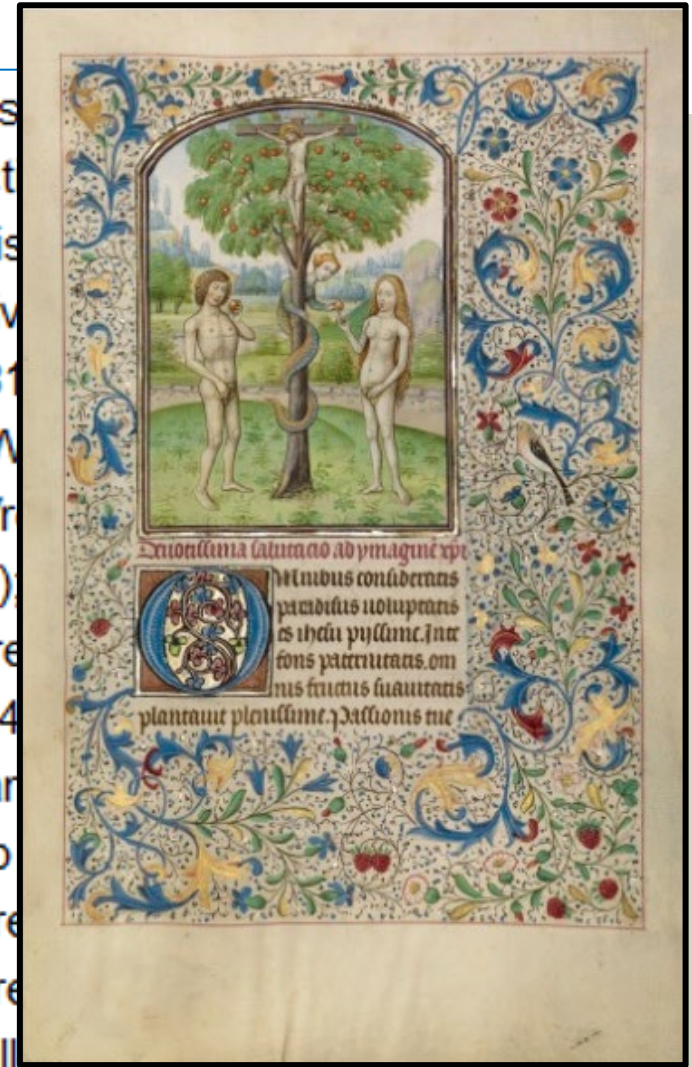 Deuotissima salutacio ad ymaginē xpi
Omnibus consideratis
paradisus uoluptatis
es ihesu pijssime. In te
fons paternitatis. om
nis fructus suauitatis
plantauit plenissime. Passionis tue